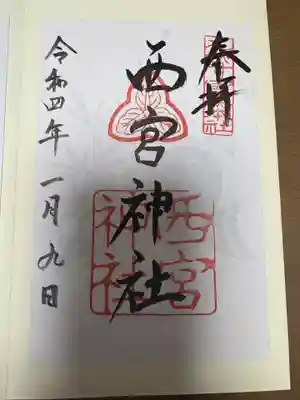 奉拝
西宮神社
令和四年一月九日
西宮
神社